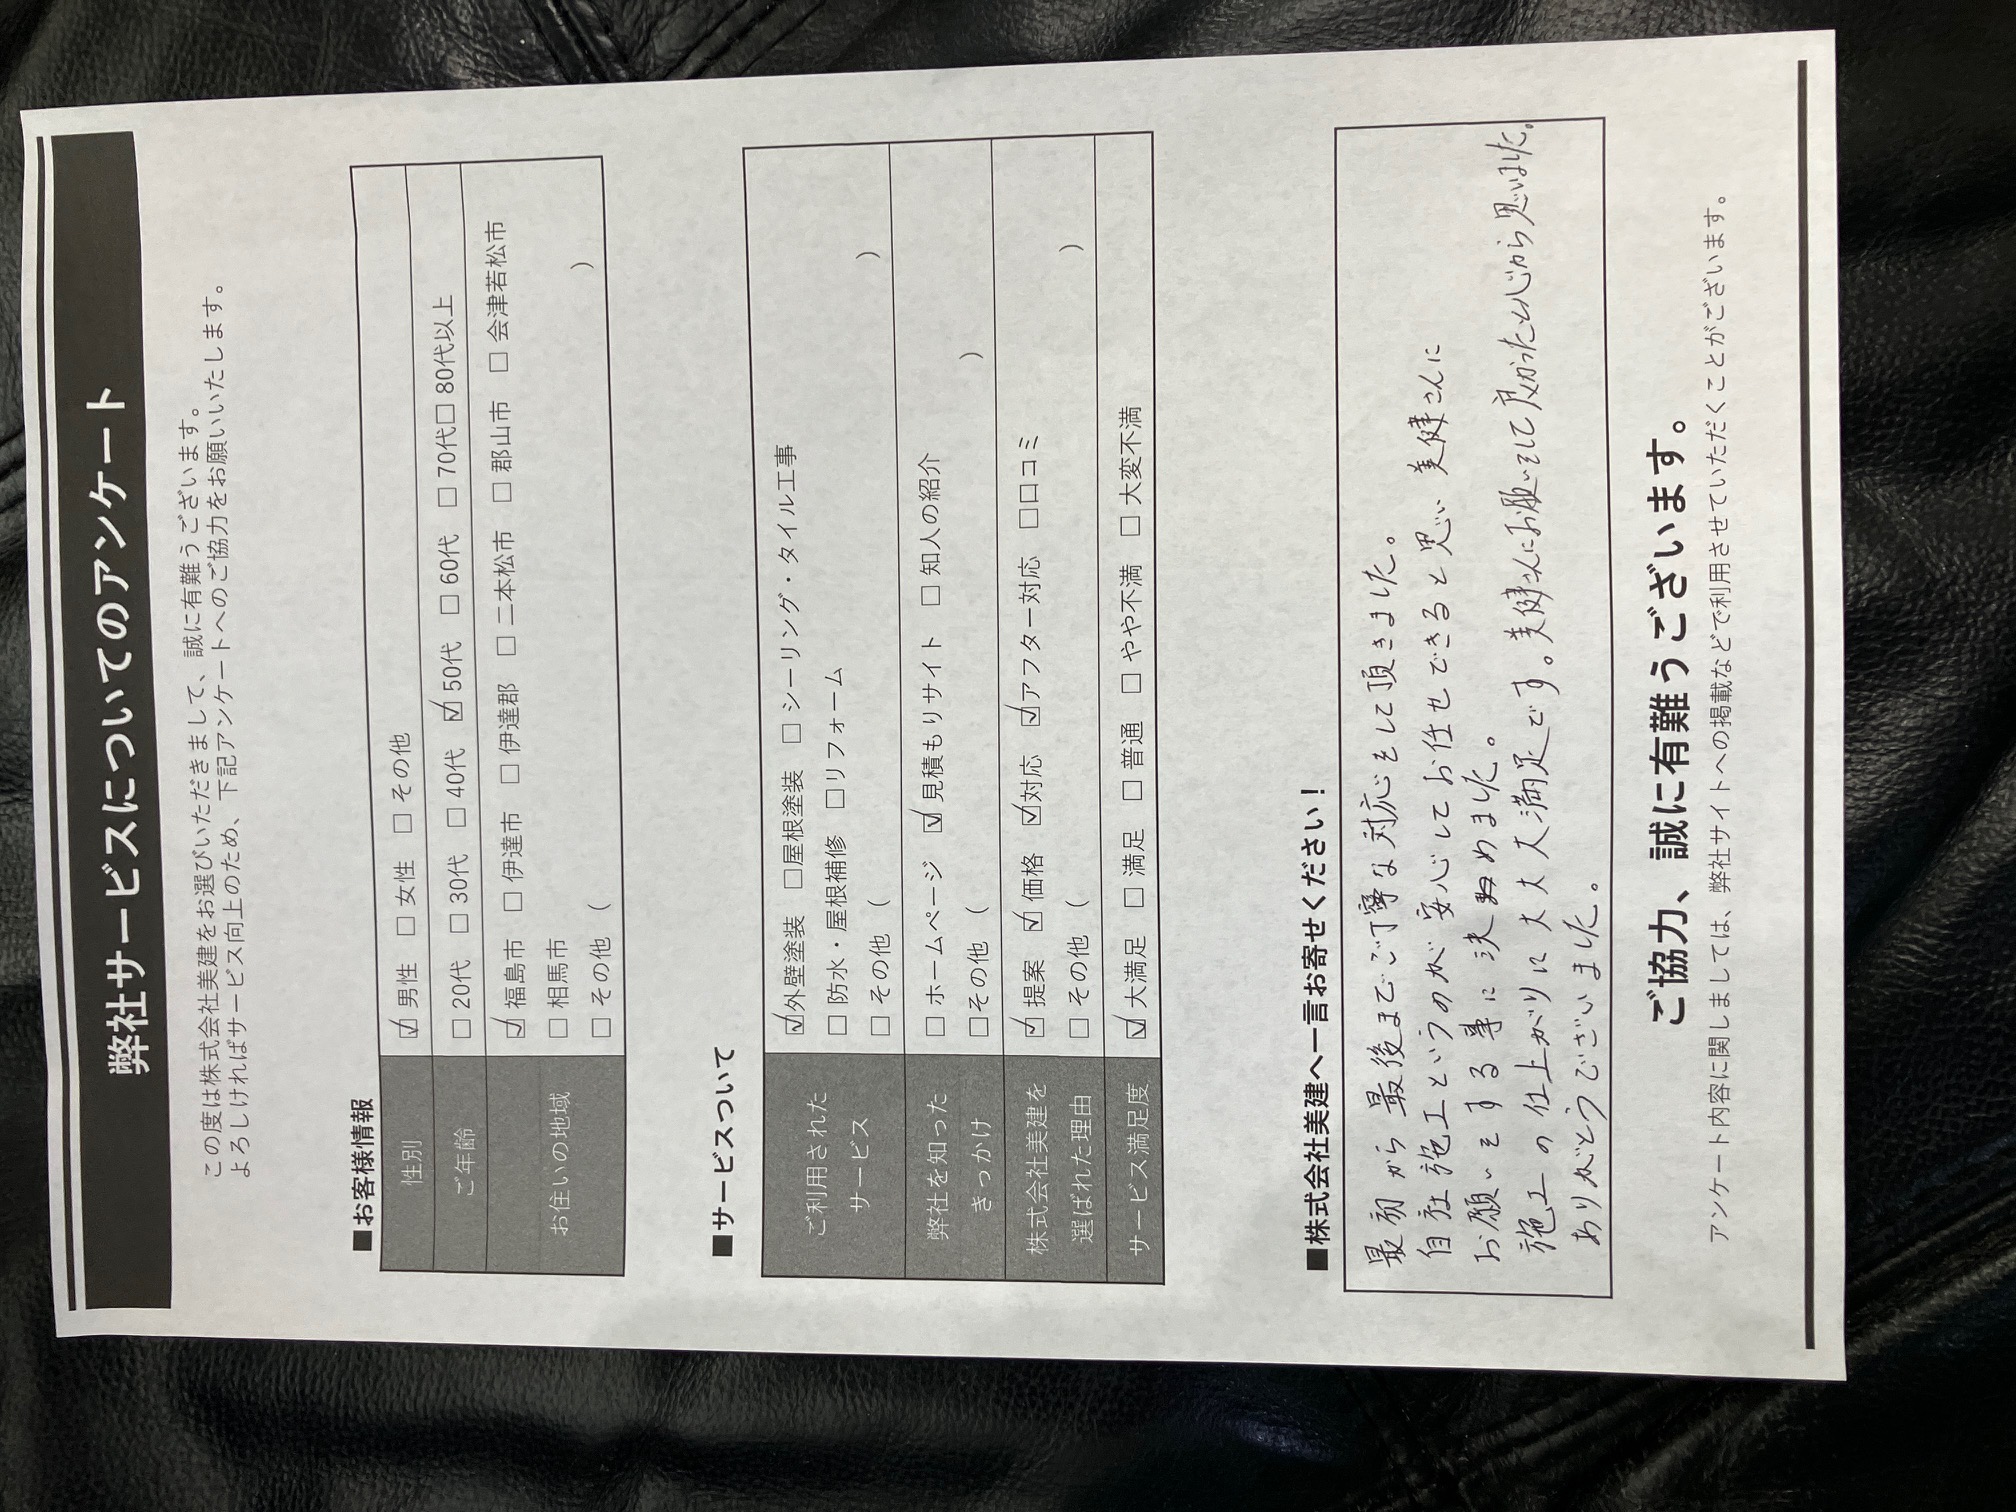 弊社サービスについてのアンケート
この度は株式会社美建をお選びいただきまして、誠に有難うございます。
よろしければサービス向上のため、下記アンケートへのご協力をお願いいたします。
■お客様情報
性別 ☑ 男性 □ 女性 □ その他
ご年齢 □ 20代 □ 30代 □ 40代 ☑ 50代 □ 60代 □ 70代□ 80代以上
お住いの地域 ☑ 福島市 □ 伊達市 □ 伊達郡 □ 二本松市 □ 郡山市 □ 会津若松市
□ 相馬市
□ その他 ( )
■サービスついて
ご利用された ☑外壁塗装 □屋根塗装 □ シーリング・タイル工事
サービス □ 防水・屋根補修 □リフォーム
□ その他 ( )
弊社を知った □ ホームページ ☑ 見積もりサイト □ 知人の紹介
きっかけ □その他 ( )
株式会社美建を ☑ 提案 ☑ 価格 ☑対応 ☑アフター対応 □口コミ
選ばれた理由 □ その他 ( )
サービス満足度 ☑ 大満足 □ 満足 □ 普通 □ やや不満 □ 大変不満
■株式会社美建へ一言お寄せください！
最初から最後までご丁寧な対応をして頂きました。
自社施工というのが安心してお任せできると思い 美健さんに
お願いをする事に決めました。
施工の仕上がりに大大大満足です。美健さんにお願いをして良かったと心から思いました。
ありがとうございました。
ご協力、誠に有難うございます。
アンケート内容に関しましては、弊社サイトへの掲載などで利用させていただくことがございます。